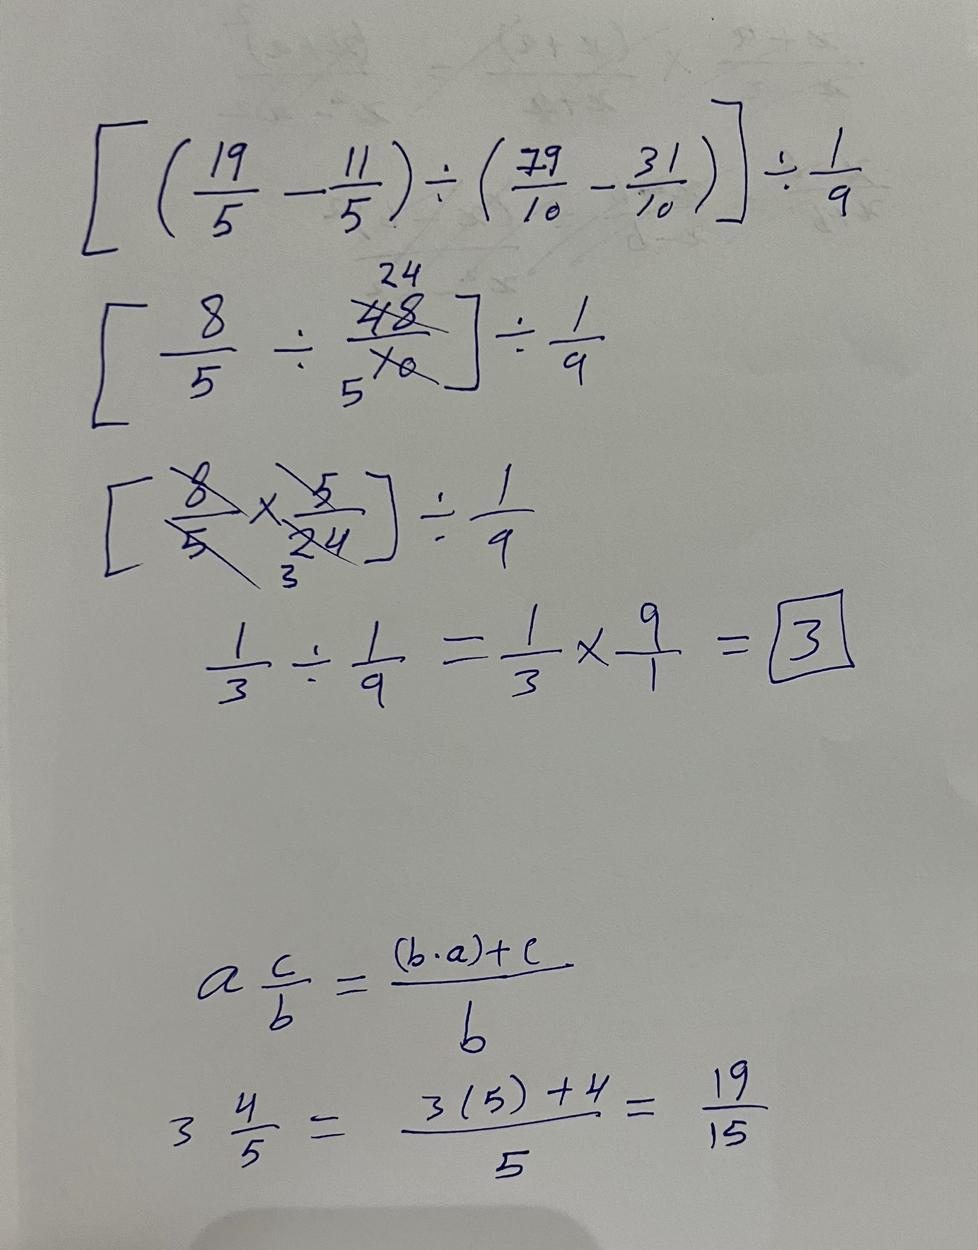 [(19/5 - 11/5) ÷ (79/10 - 31/10)] ÷ 1/9
[8/5 ÷ 48/10] ÷ 1/9 24 5
[8/5 × 5/24] ÷ 1/9 3
1/3 ÷ 1/9 = 1/3 × 9/1 = 3
a c/b = (b·a)+c/b
3 4/5 = 3(5)+4/5 = 19/15